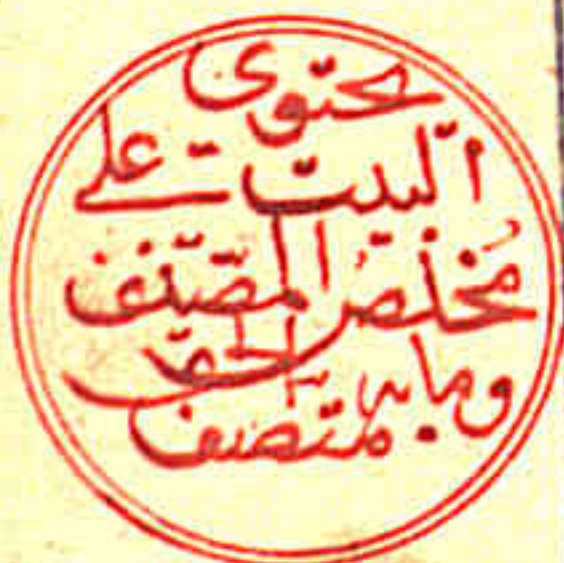 يحتوى
البيت على
مختصر المصنف
وما به الحق
متصف